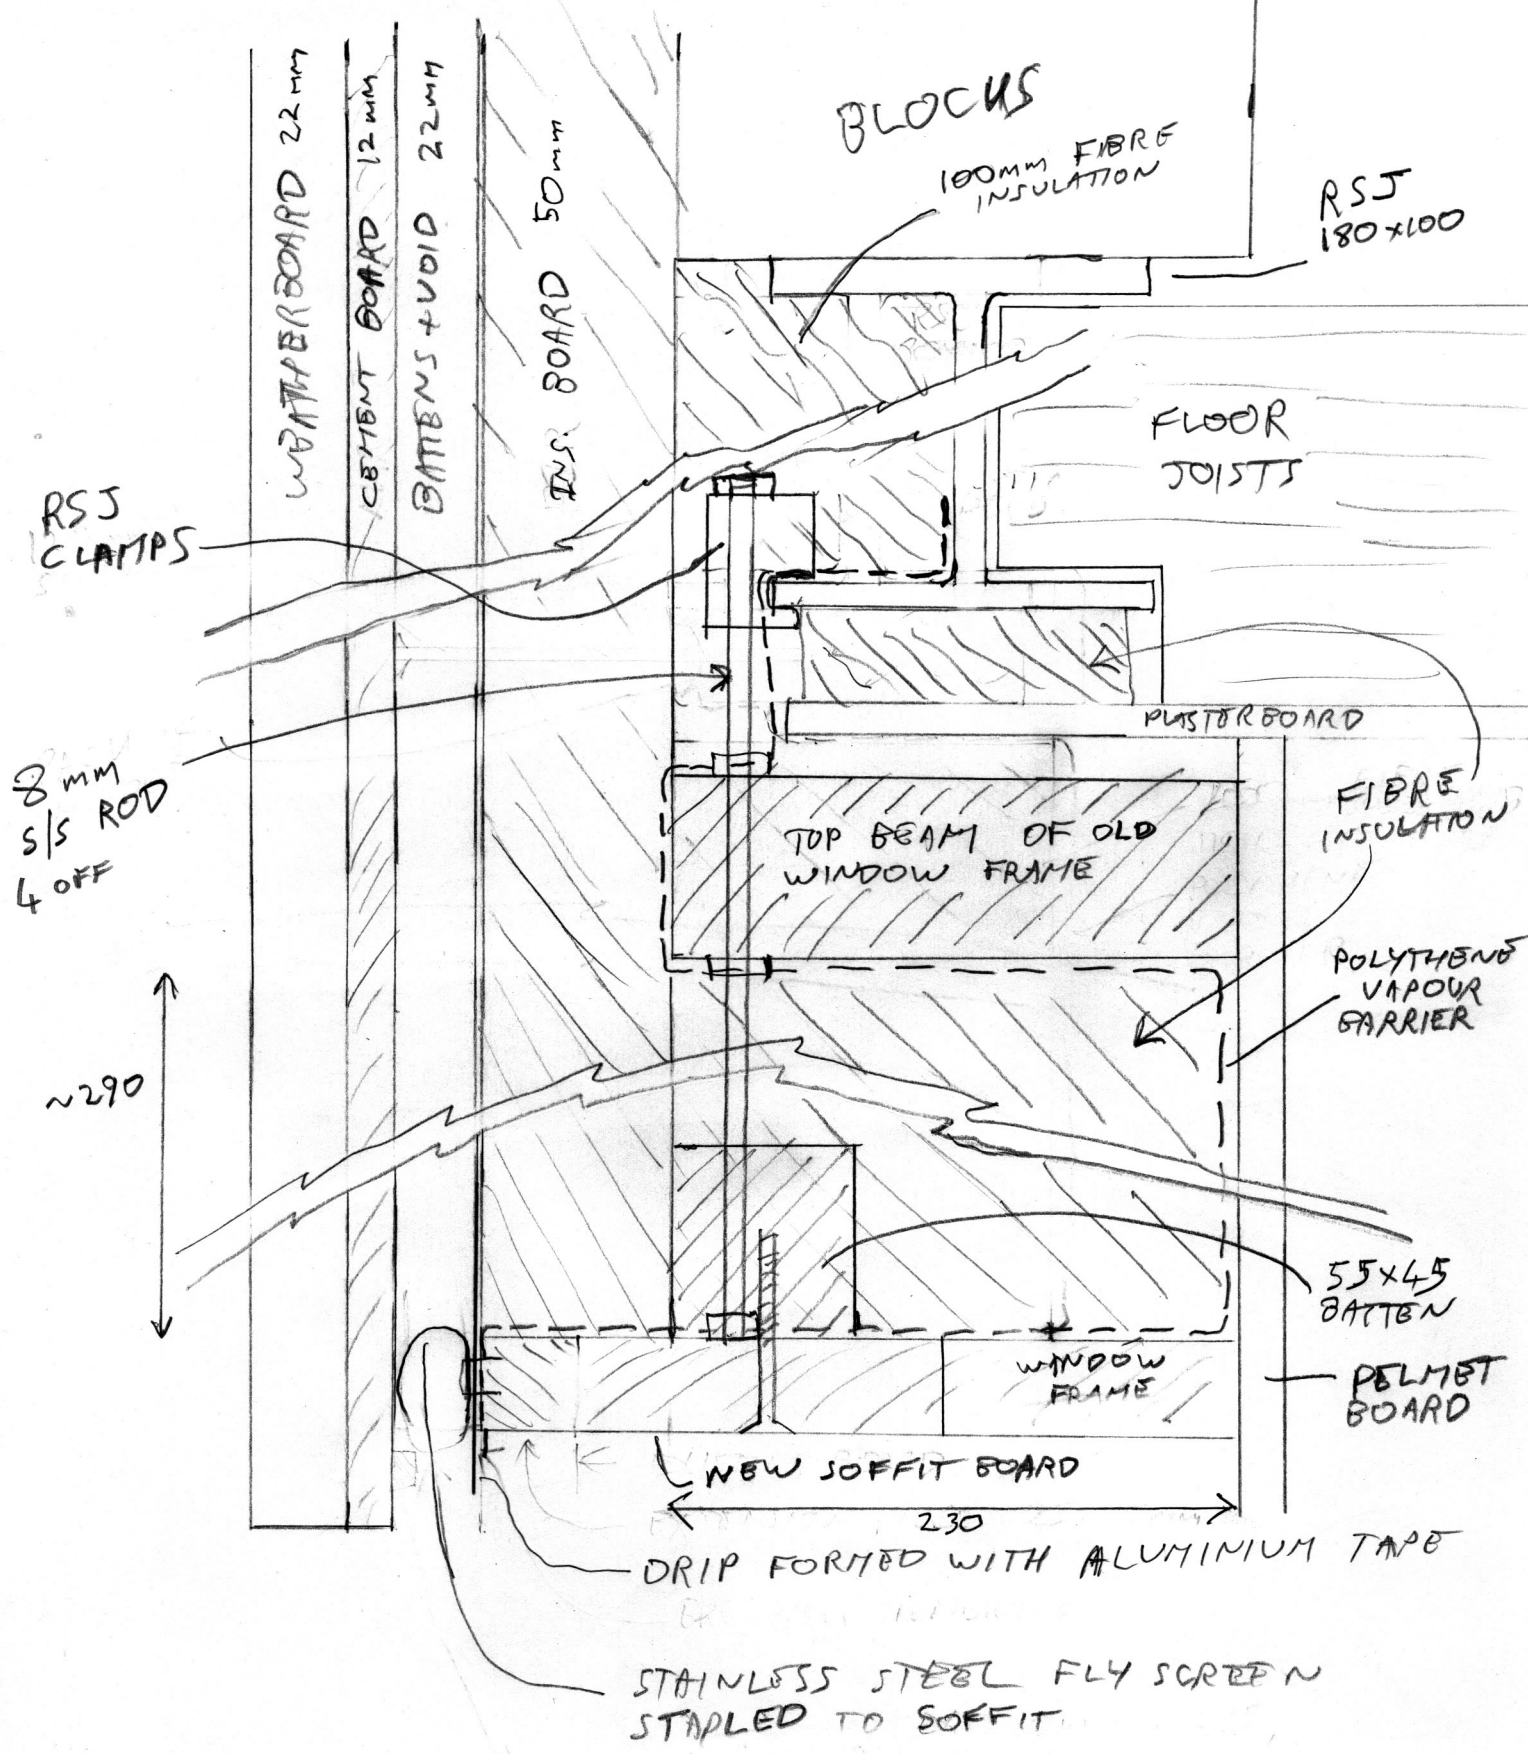 WEATHERBOARD 22mm
CEMENT BOARD 12mm
BATTENS + VOID 22mm
INS. BOARD 50mm
BLOCKS
100mm FIBRE
INSULATION
RSJ
180x100
FLOOR
JOISTS
RSJ
CLAMPS
PLASTERBOARD
8mm
S/S ROD
4 OFF
FIBRE
INSULATION
TOP BEAM OF OLD
WINDOW FRAME
POLYTHENE
VAPOUR
BARRIER
~290
55x45
BATTEN
WINDOW
FRAME
PELMET
BOARD
NEW SOFFIT BOARD
230
DRIP FORMED WITH ALUMINIUM TAPE
STAINLESS STEEL FLY SCREEN
STAPLED TO SOFFIT